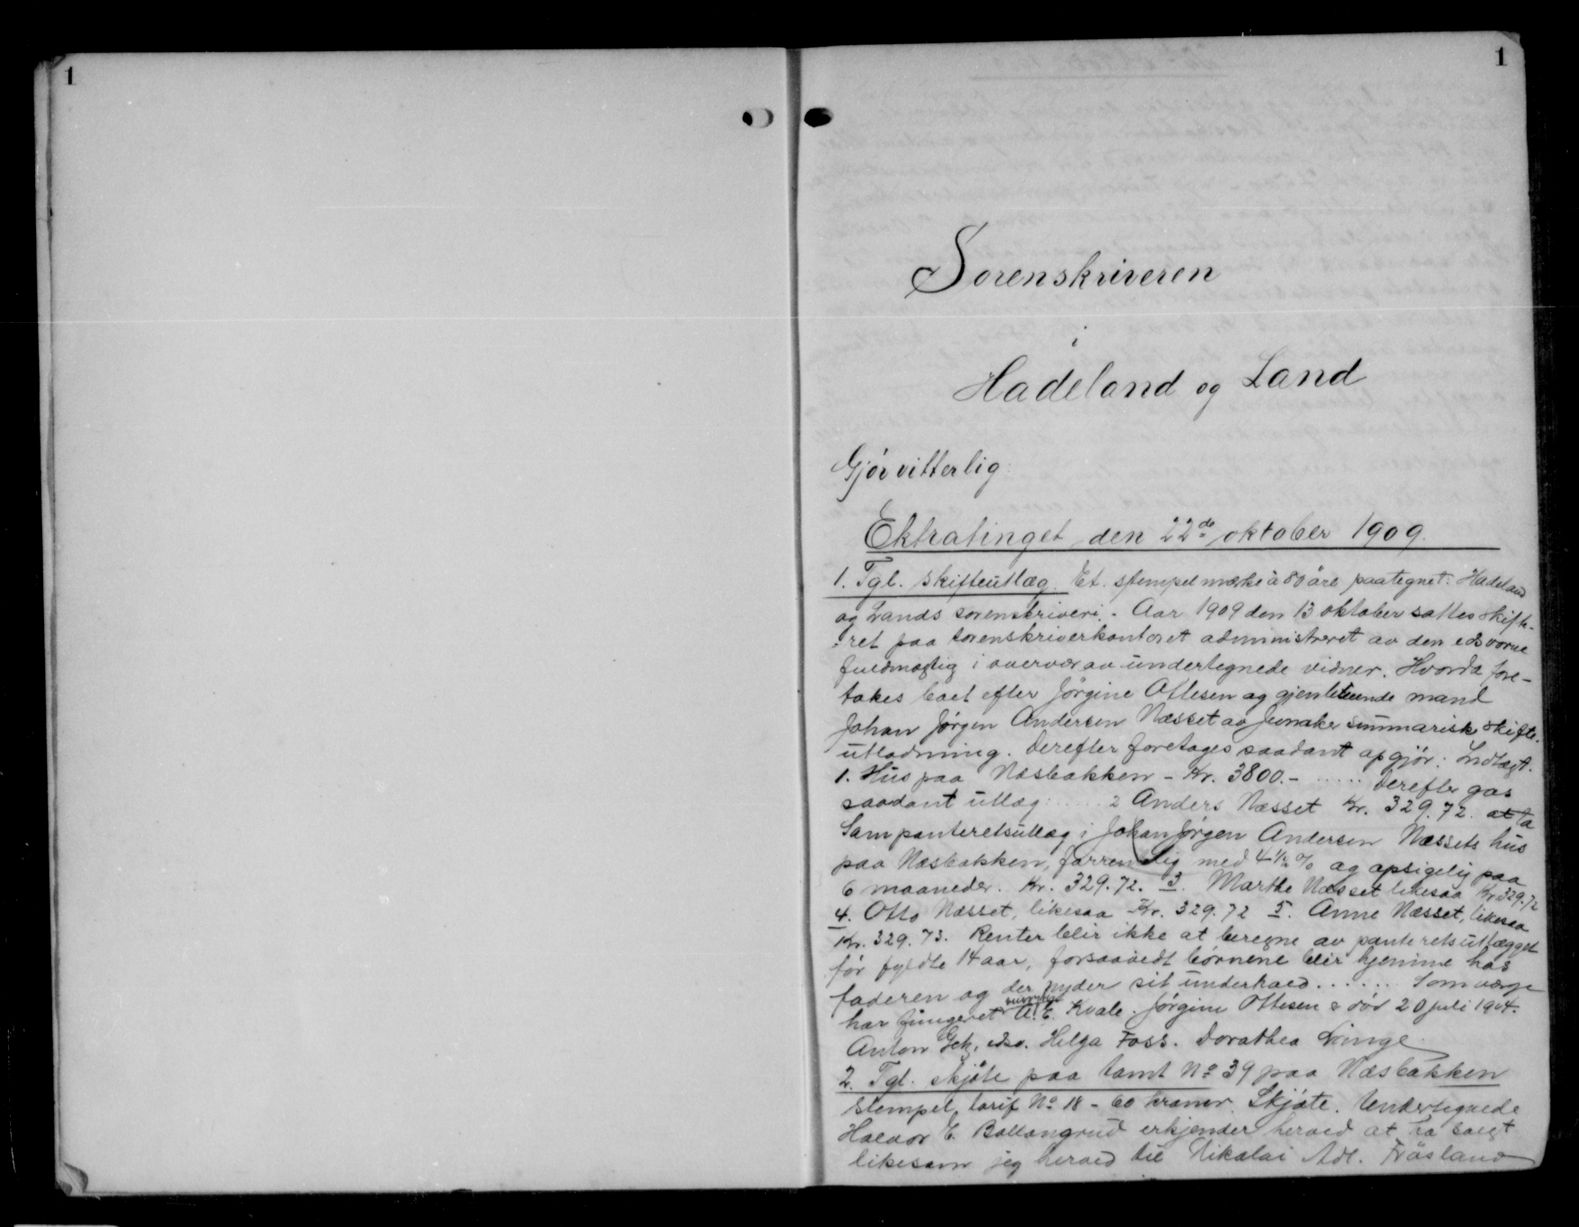 1
1
Sorenskriveren
i
Hadeland og Land
Gjör vitterlig:
Ektratinget den 22de oktober 1909.
1. Tgl. skifteutlæg. Et. stempelmerke à 80 öre paategnet: Hadeland
og Lands sorenskriveri. - Aar 1909 den 13 oktober sattes skifte-
ret paa sorenskriverkontoret administreret av den edsvorne
fuldmægtig i overvær av undertegnede vidner. Hvorda fore-
takes boet efter Jörgine Ottesen og gjenlevende mand
Johan Jörgen Andersen Næsset av Jevnaker summarisk skifte-
utlodning. Derefter foretages saadant opgjör: Indtægt.
1. Hus paa Næsbakken - Kr. 3800.- ...... Derefter gas
saadant utlæg: ..... 2 Anders Næsset Kr. 329.72. at ta
Sampanteretsutlæg i Johan Jörgen Andersen Næssets hus
paa Næsbakken, forrentlig med 4 1/2 % og opsigelig paa
6 maaneder. Kr. 329.72. 3. Marthe Næsset likesaa Kr 329.72
4. Otto Næsset, likesaa Kr. 329.72 5. Anne Næsset, likesaa
Kr. 329.73. Renter blir ikke at beregne av panteretsutlægget
för fyldte 14 aar, forsaavidt börnene blir hjemme hos
faderen og der nyder sit underhold ...... Som værge
har fungeret A. E. Kvale. Jörgine Ottesen e död 20 juli 1904.
Anton Gek, edsv. Helga Foss. Dorathea Dvinge
2. Tgl. skjöte paa tomt No 39 paa Næsbakken
Stempel, tarif No 18 - 60 kroner. Skjöte. Undertegnede
Halvor E. Ballangrud erkjender herved at ha solgt
likesom jeg herved til Nikolai Adl. Fröslang